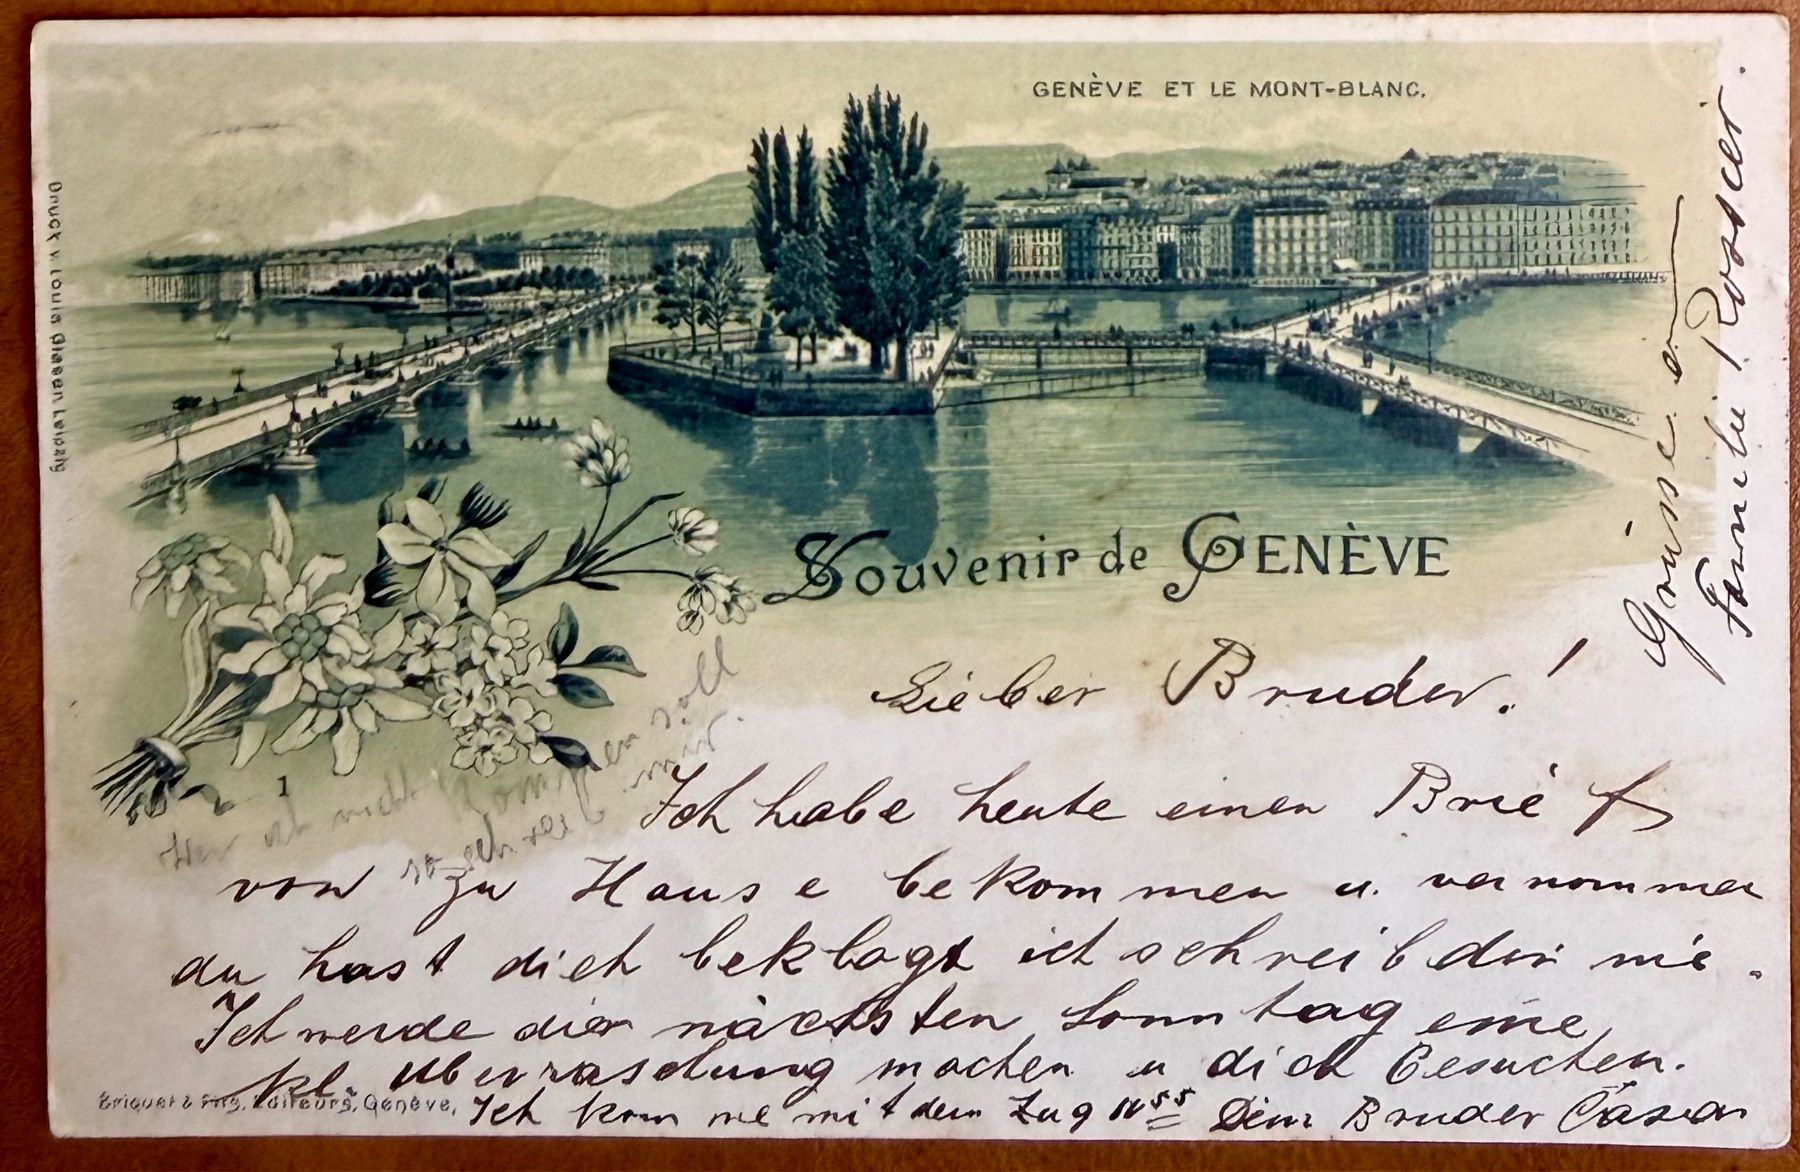 GENÈVE ET LE MONT-BLANC.
Druck v. Louis Glaser Leipzig
Souvenir de GENÈVE
Grüsse a
Familie Rossier.
Lieber Bruder!
Ich habe heute einen Brief
von zu Hause bekommen u. vernommen
du hast dich beklagt ich schreib dir nie.
Ich werde dir nächsten Sonntag eine
kl. Überraschung machen u dich besuchen.
Ich komme mit dem Zug 11 55 Dein Bruder
ich nicht kommen soll
so schreib mir.
1
Briquet & Fils, Editeurs, Genève.